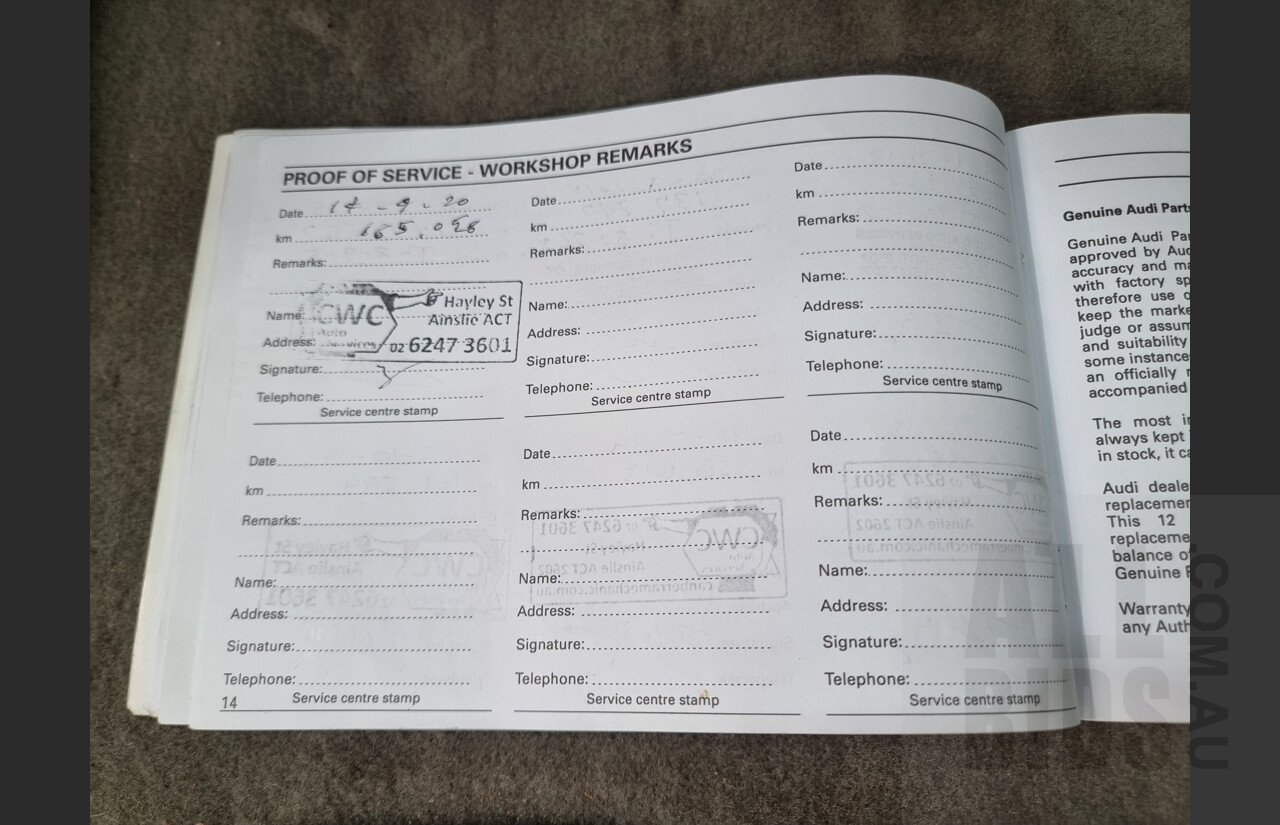 PROOF OF SERVICE - WORKSHOP REMARKS
Date 14 - 9 - 20
km 165,056
Remarks:
Name:
Address:
CWC
Auto
Services
Hayley St
Ainslie ACT
02 6247 3601
Signature:
Telephone:
Service centre stamp
Date
km
Remarks:
Name:
Address:
Signature:
Telephone:
Service centre stamp
Date
km
Remarks:
Name:
Address:
Signature:
Telephone:
Service centre stamp
Date
km
Remarks:
Name:
Address:
Signature:
Telephone:
Service centre stamp
14
Date
km
Remarks:
Name:
Address:
Signature:
Telephone:
Service centre stamp
Date
km
Remarks:
Name:
Address:
Signature:
Telephone:
Service centre stamp
Genuine Audi Parts
Genuine Audi Par
approved by Aud
accuracy and ma
with factory sp
therefore use o
keep the marke
judge or assum
and suitability
some instance
an officially
accompanied
The most i
always kept
in stock, it ca
Audi deale
replacemen
This 12
replaceme
balance o
Genuine P
Warranty
any Auth
ALLBIDS
.COM.AU